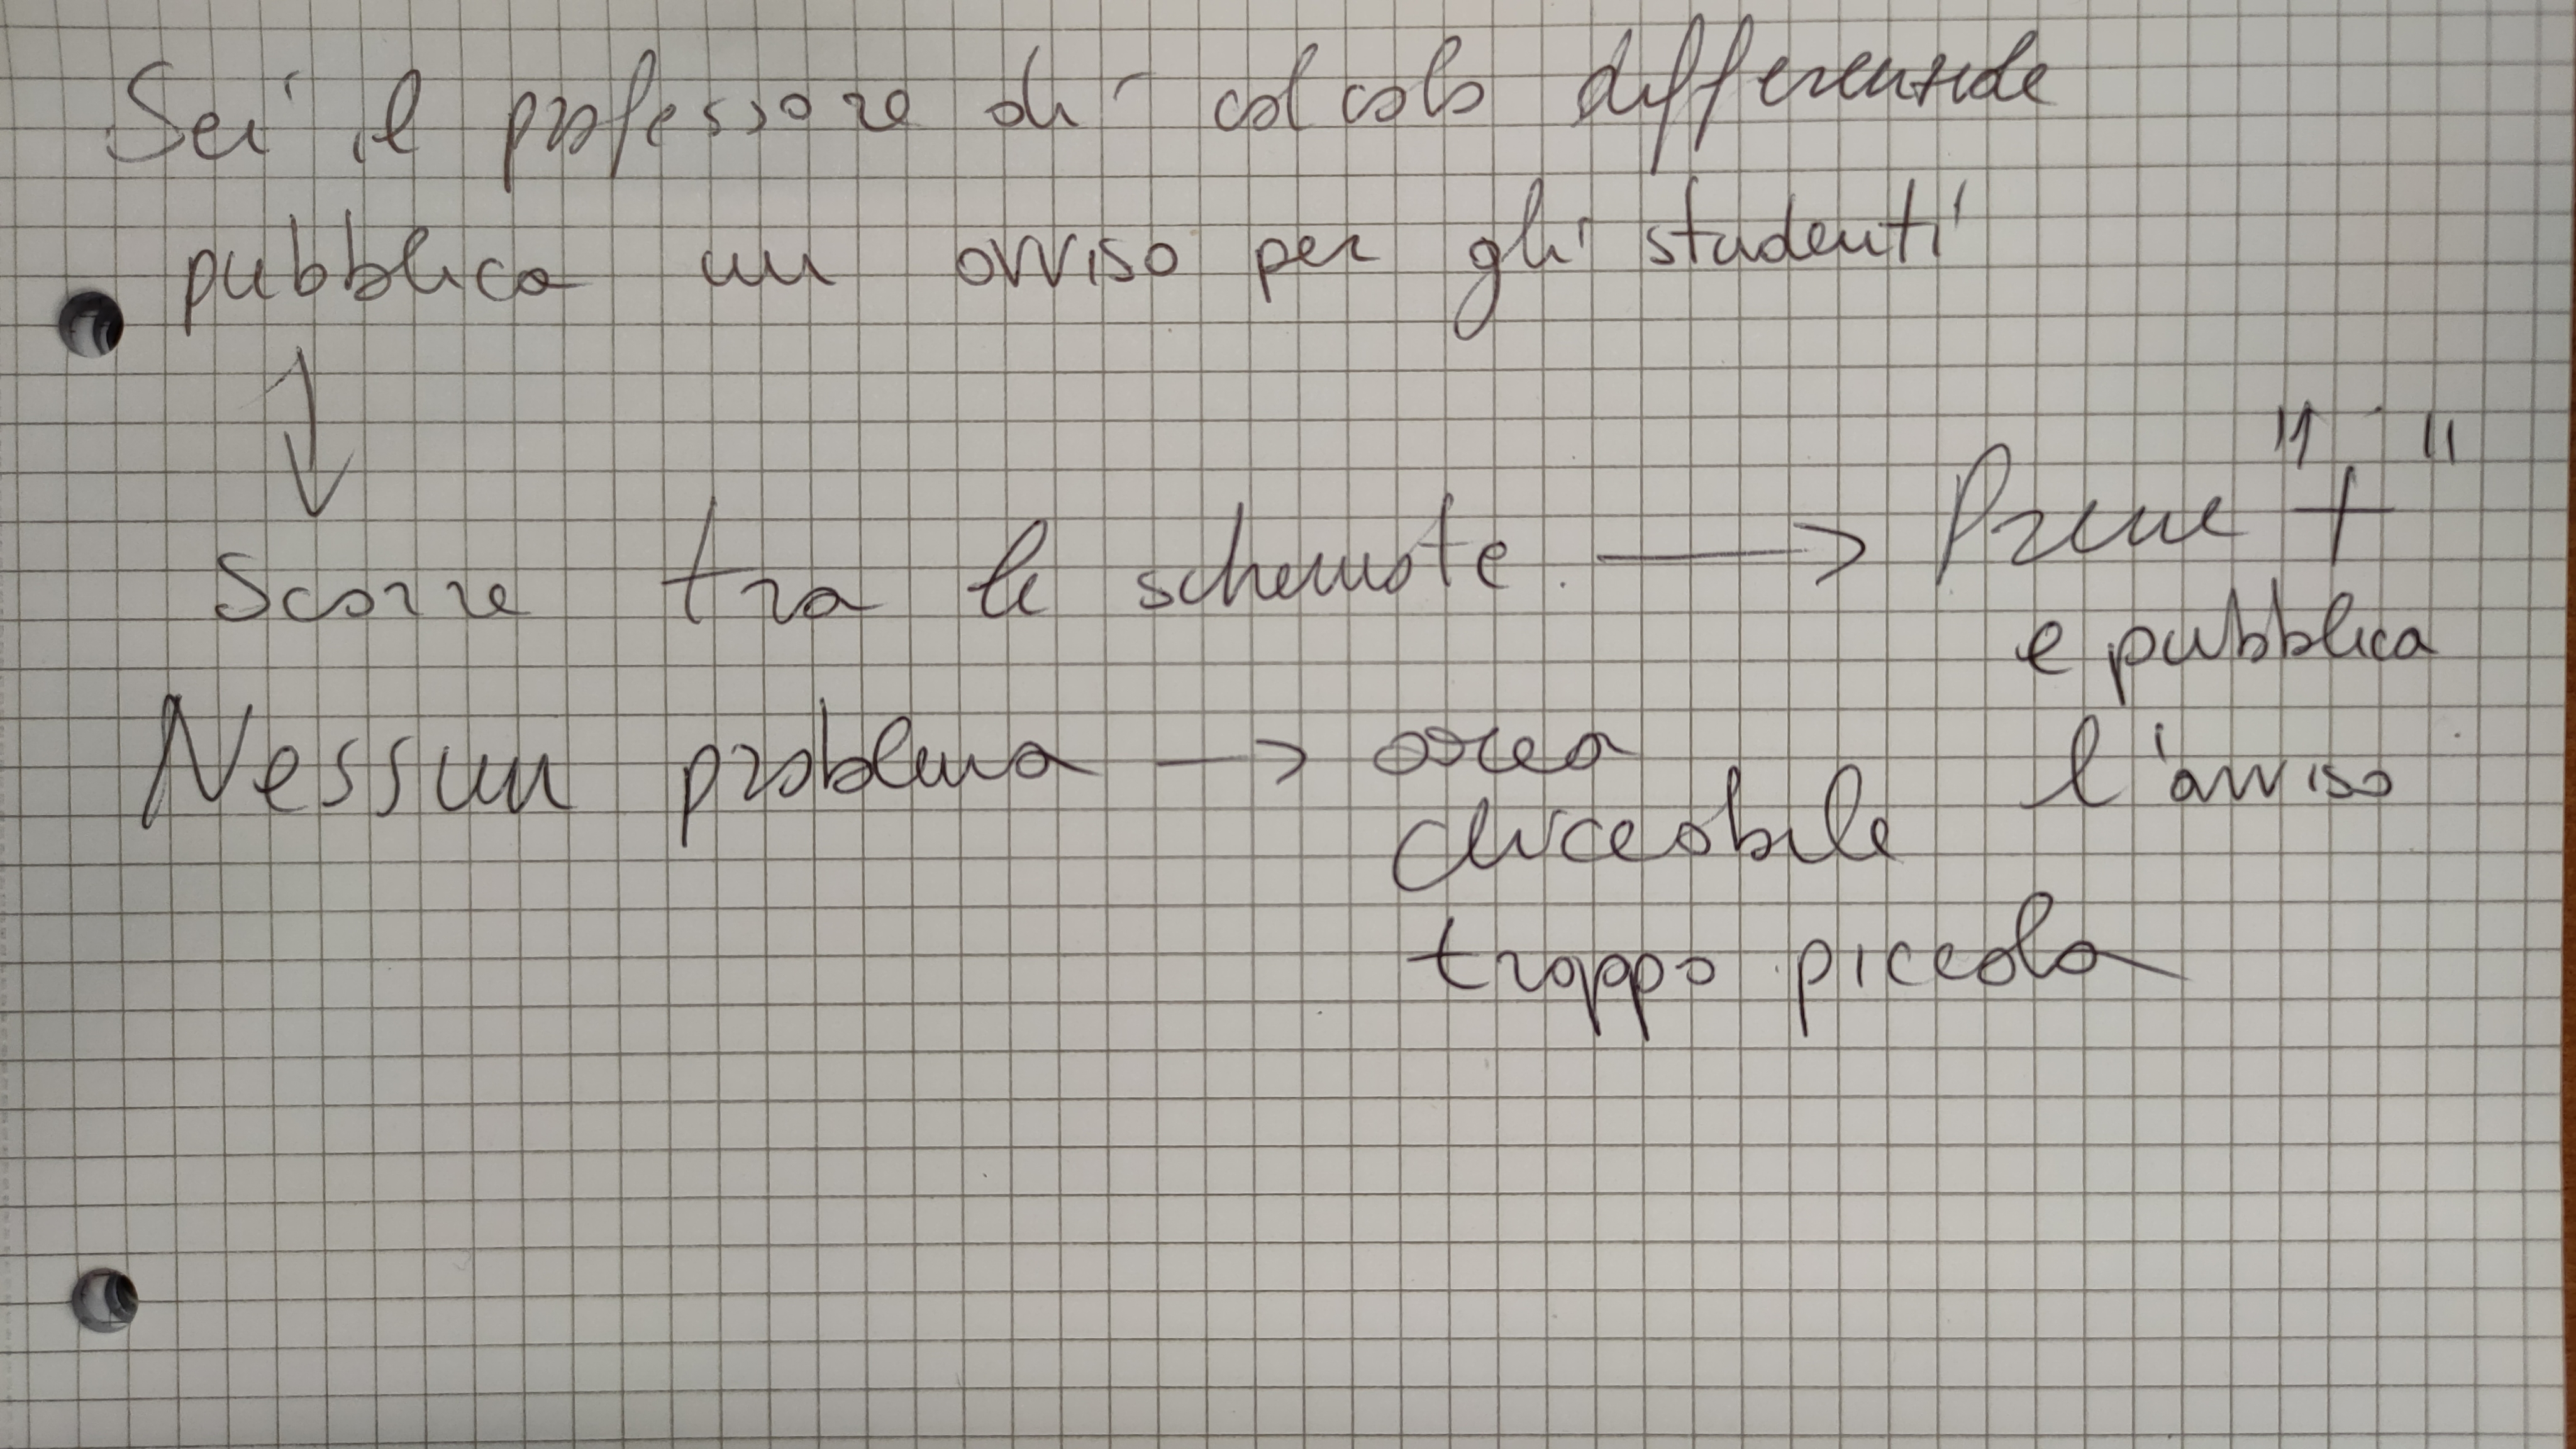 Sei il professore di calcolo differenziale
pubblica un avviso per gli studenti
↓
Scorre tra le schermate. → Preme "+"
e pubblica
l'avviso
Nessun problema → area
cliccabile
troppo piccola